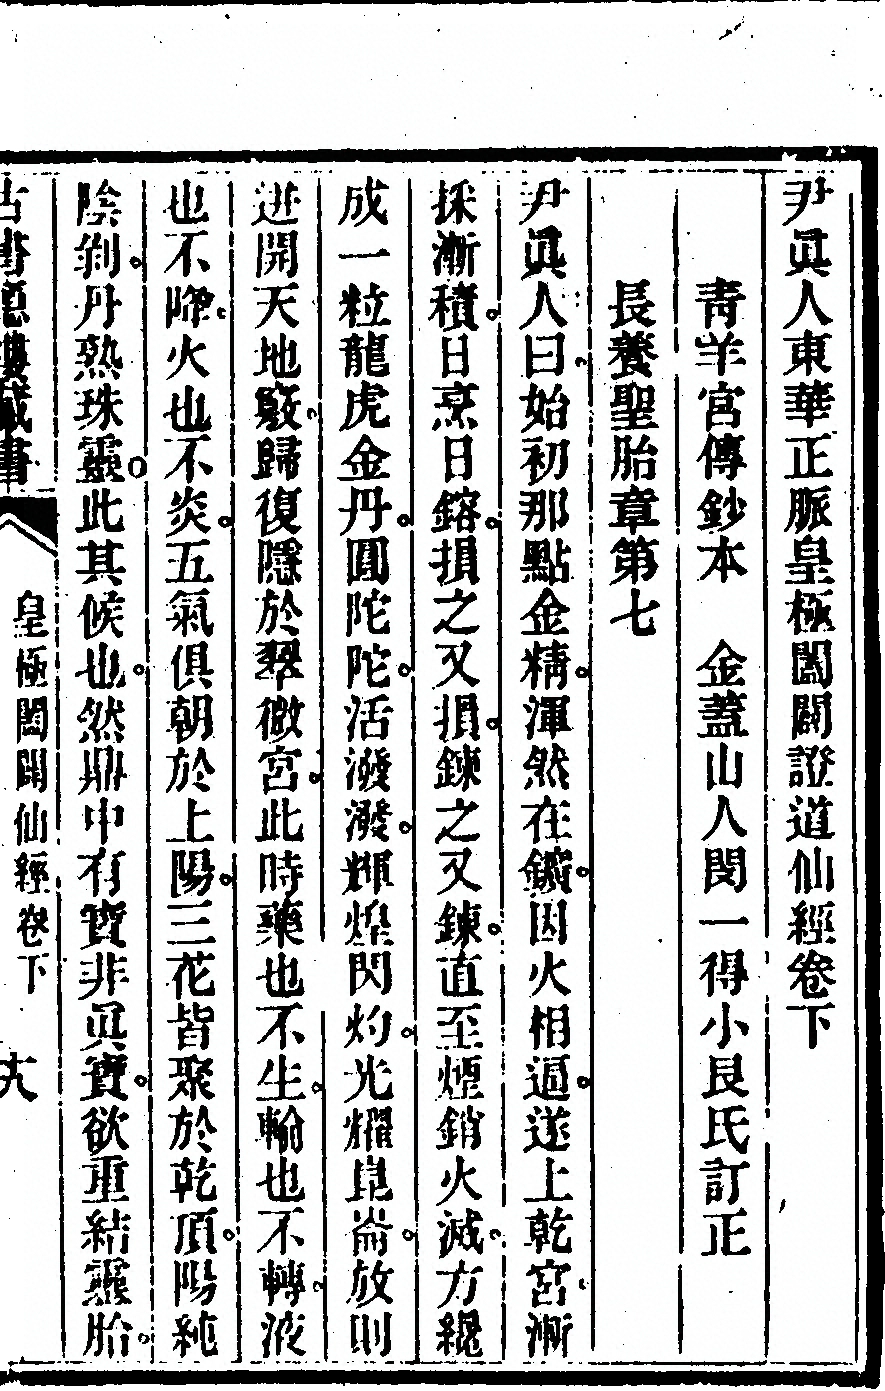 尹眞人東華正脈皇極闔闢證道仙經卷下
青羊宮傳鈔本　金蓋山人閔一得小艮氏訂正
長養聖胎章第七
尹眞人曰。始初那點金精。渾然在鑛。因火相逼。遂上乾宮。漸
採漸積。日烹日鎔。損之又損。鍊之又鍊。直至煙銷火滅。方纔
成一粒龍虎金丹。圓陀陀。活潑潑。輝煌閃灼。光耀崑崙。放則
迸開天地竅。歸復隱於翠微宮。此時藥也不生。輪也不轉。液
也不降。火也不炎。五氣俱朝於上陽。三花皆聚於乾頂。陽純
陰剝。丹熟珠靈。此其候也。然鼎中有寶非眞寶。欲重結靈胎。
古書隱樓藏書
皇極闔闢仙經卷下
十八